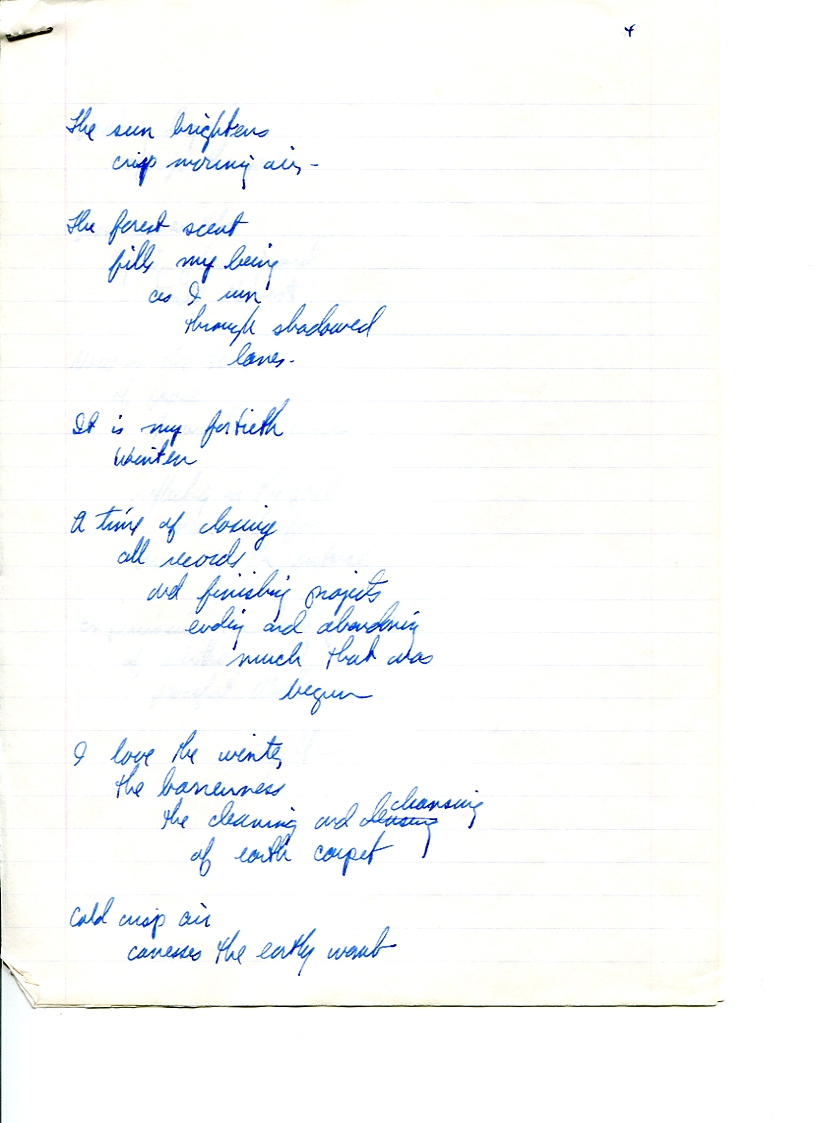 4
The sun brightens
crisp morning air -
The forest scent
fills my being
as I run
through shadowed
lanes.
It is my fortieth
Winter
A time of closing
all records
and finishing projects
ending and abandoning
much that was
begun
I love the winter,
the barrenness
the cleaning and clensing cleansing
of earth carpet
Cold crisp air
caresses the earthy womb